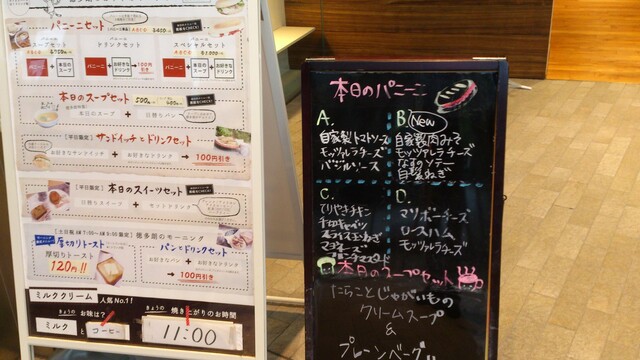 パニーニセット
スープセット
ドリンクセット
スペシャルセット
パニーニ
+
本日のスープ
パニーニ
+
お好きなドリンク
100円引き
パニーニ
+
本日のスープ
+
お好きなドリンク
本日のスープセット
本日のスープ
+
日替りパン
【平日限定】サンドイッチとドリンクセット
お好きなサンドイッチ
+
お好きなドリンク
100円引き
【平日限定】本日のスイーツセット
日替りスイーツ
+
セットドリンク
徳多朗のモーニング
厚切りトースト
厚切りトースト
120円!!
パンとドリンクセット
お好きなパン
+
お好きなドリンク
100円引き
ミルククリーム
人気No.1!
きょうの
お味は?
ミルク
と
コーヒー
きょうの
焼き上がりのお時間
11:00
本日のパニーニ
A.
自家製トマトソース
モッツァレラチーズ
バジルソース
B.
New
自家製肉みそ
モッツァレラチーズ
なすのソテー
白髪ねぎ
C.
てりやきチキン
マヨネーズ
D.
マリボーチーズ
ロースハム
モッツァレラチーズ
本日のスープセット
たらことじゃがいもの
クリームスープ
&
プレーンベーグル